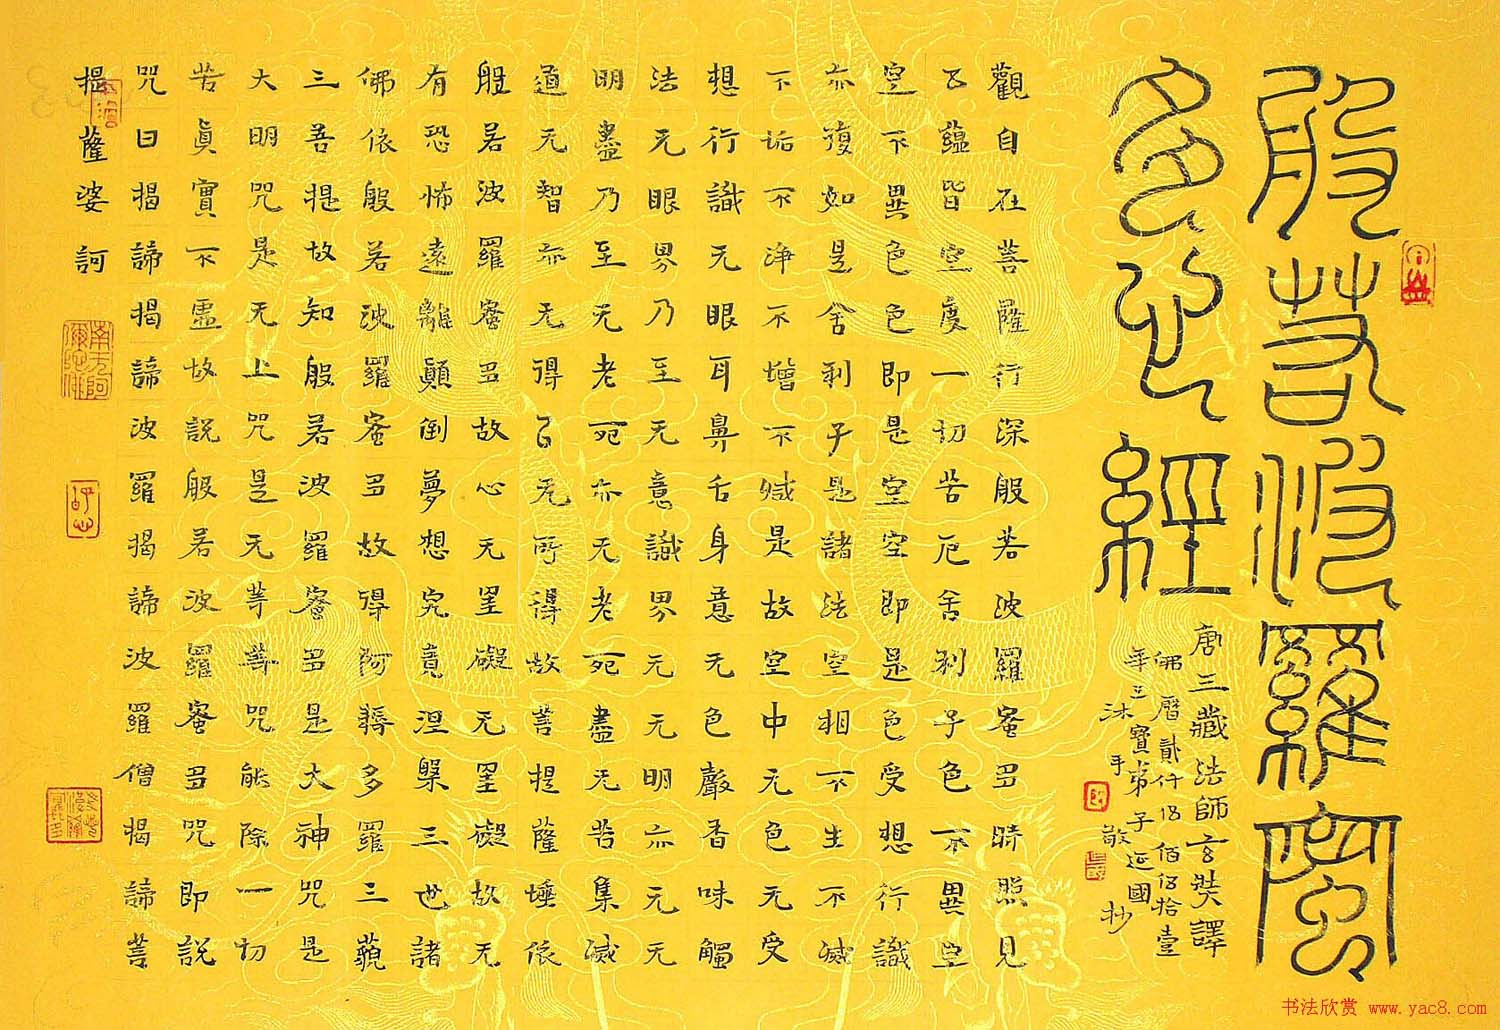 般若波羅蜜
多心經
唐三藏法師玄奘譯
佛曆貳仟伍佰伍拾壹
年三寶弟子國
沐手敬抄
觀自在菩薩行深般若波羅蜜多時照見
五蘊皆空度一切苦厄舍利子色不異空
空不異色色即是空空即是色受想行識
亦復如是舍利子是諸法空相不生不滅
不垢不淨不增不減是故空中无色无受
想行識无眼耳鼻舌身意无色聲香味觸
法无眼界乃至无意識界无无明亦无无
明盡乃至无老死亦无老死盡无苦集滅
道无智亦无得以无所得故菩提薩埵依
般若波羅蜜多故心无罣礙无罣礙故无
有恐怖遠離顛倒夢想究竟涅槃三世諸
佛依般若波羅蜜多故得阿耨多羅三藐
三菩提故知般若波羅蜜多是大神咒是
大明咒是无上咒是无等等咒能除一切
苦眞實不虛故說般若波羅蜜多咒即說
咒曰揭諦揭諦波羅揭諦波羅僧揭諦菩
提薩婆訶
南无阿彌陀佛
书法欣赏 www.yac8.com